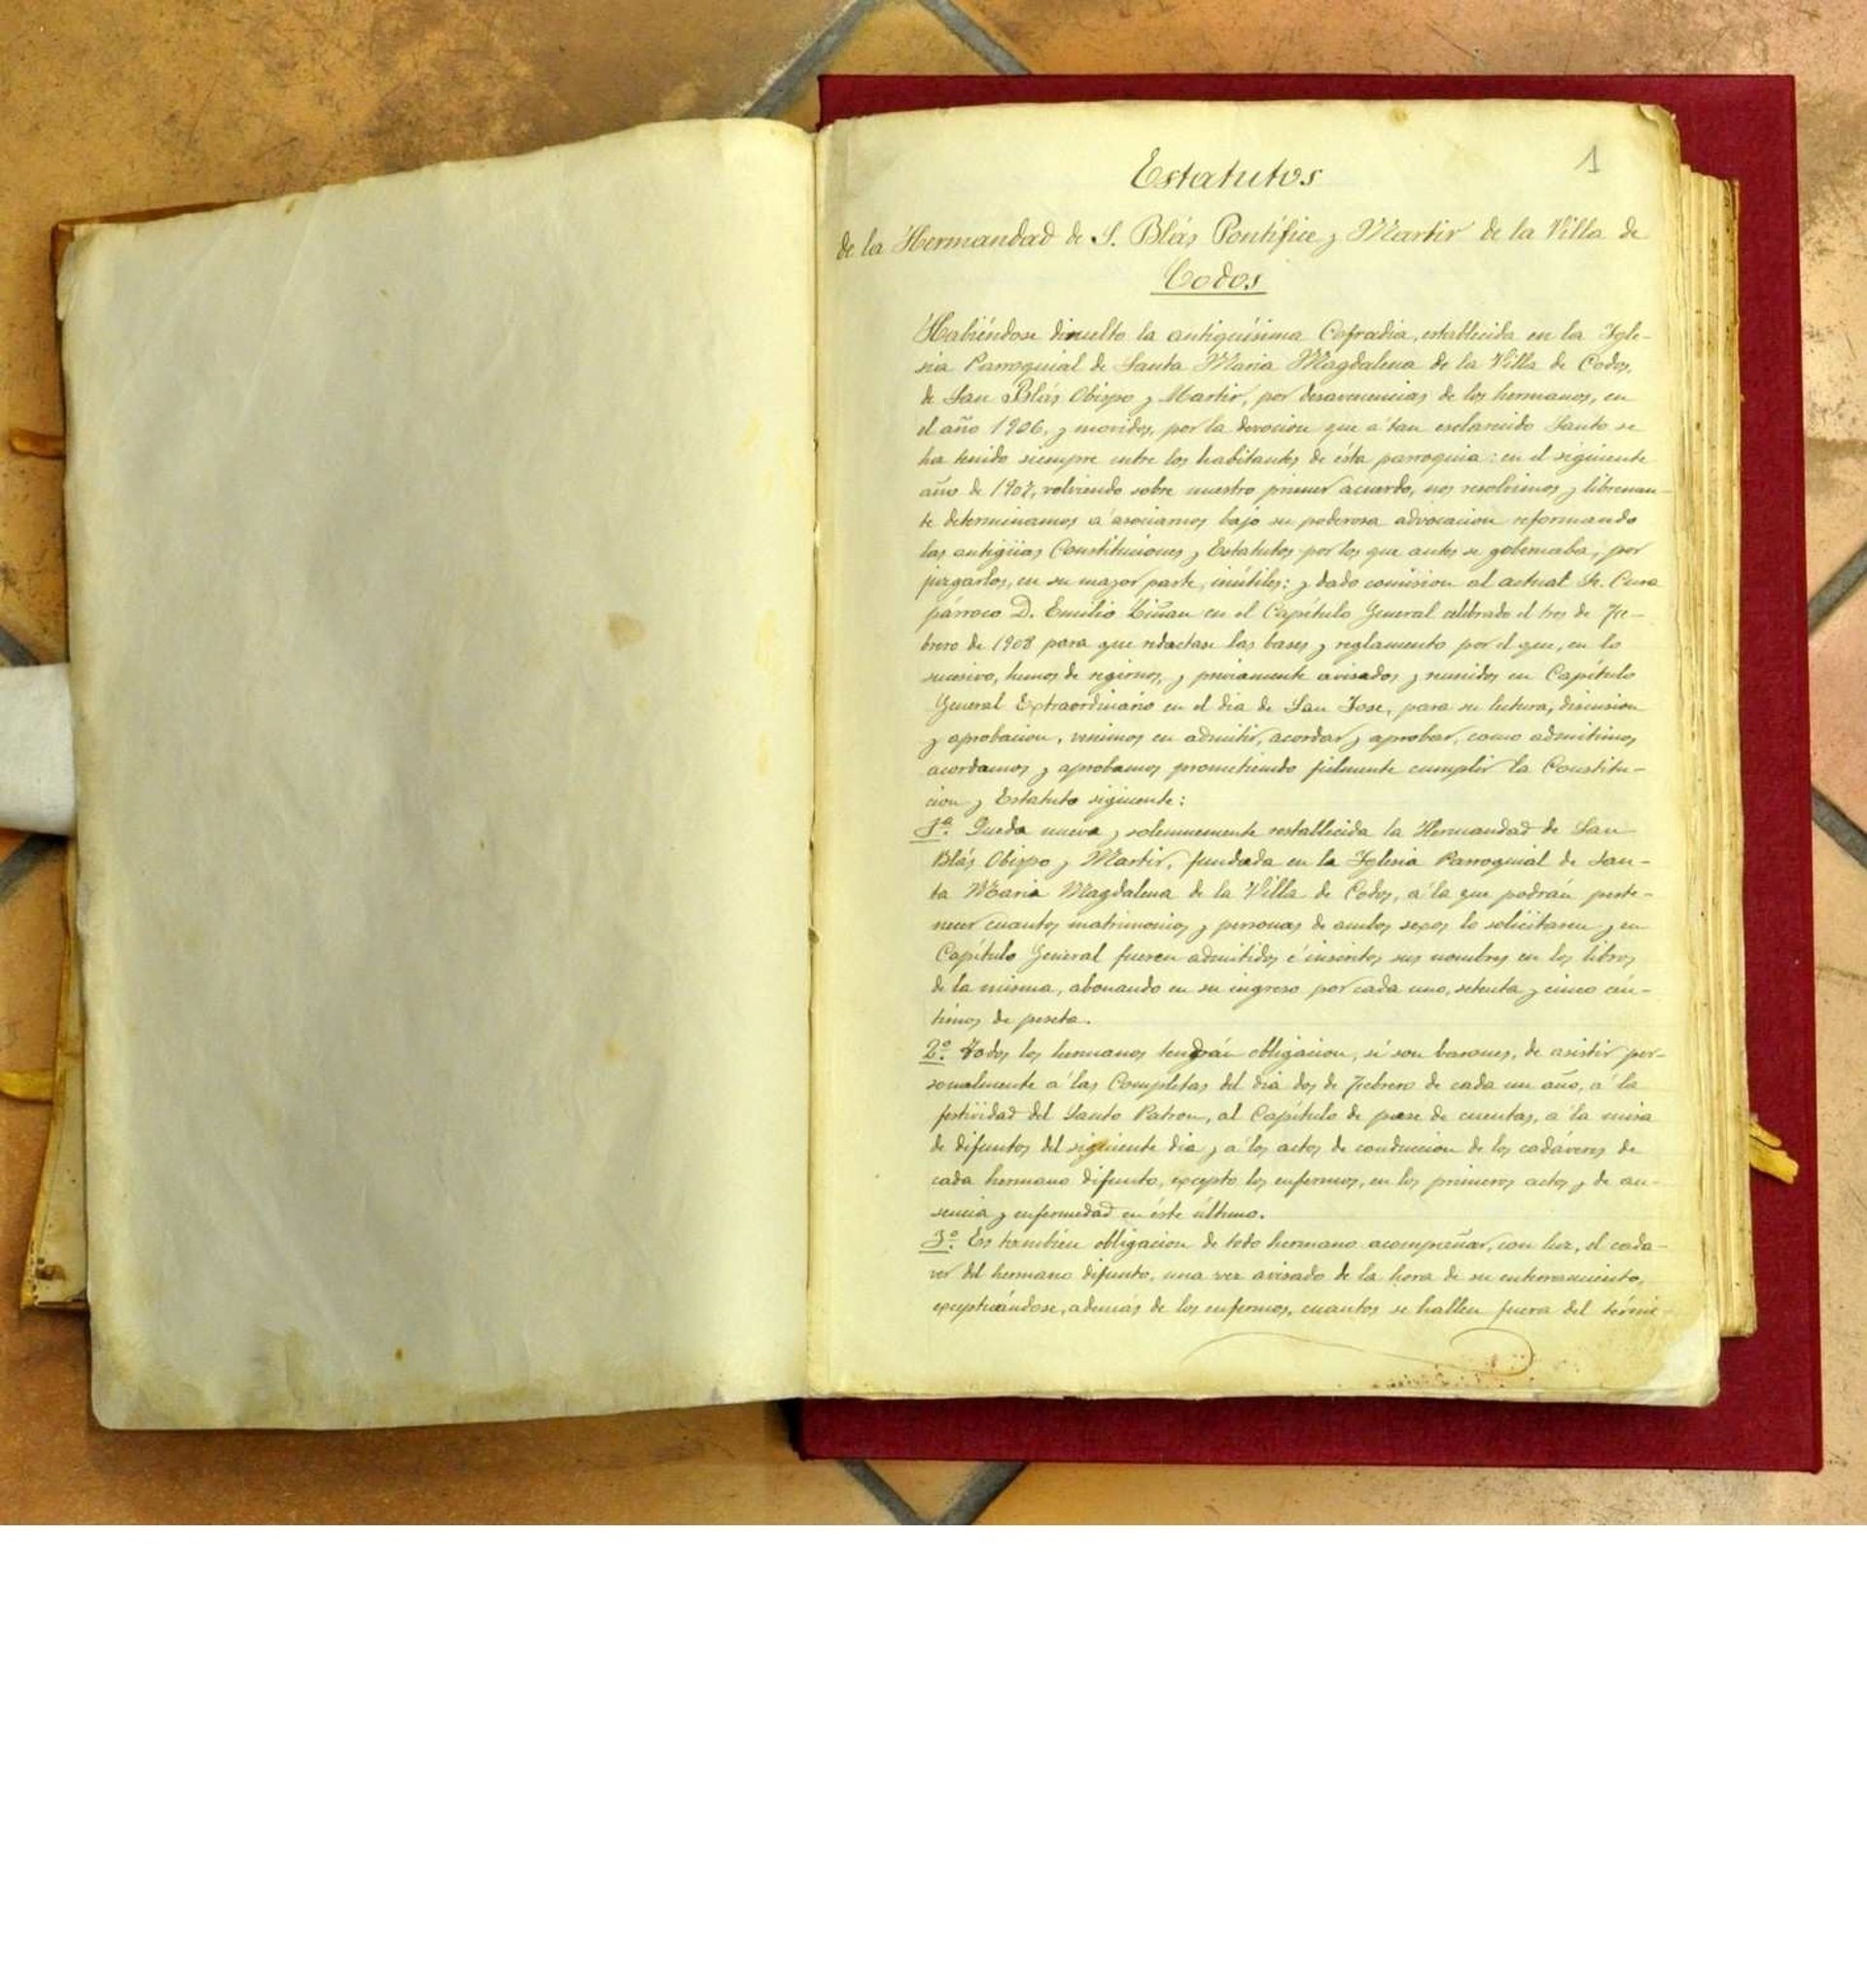 1
Estatutos
de la Hermandad de S. Blás Pontífice y Martir de la Villa de
Codos
Habiéndose disuelto la antiquísima Cofradia, establecida en la Igle-
sia Parroquial de Santa Maria Magdalena de la Villa de Codos,
de San Blás Obispo y Martir, por desavenencias de los hermanos, en
el año 1906, y movidos, por la devocion que á tan esclarecido Santo se
ha tenido siempre entre los habitantes de ésta parroquia: en el siguiente
año de 1907, volviendo sobre nuestro primer acuerdo, nos resolvimos y libremen-
te determinamos á asociarnos bajo su poderosa advocacion reformando
las antigüas Constituciones y Estatutos por los que antes se gobernaba, por
juzgarlos, en su mayor parte, inútiles: y dado comision al actual Sr. Cura
párroco D. Emilio Liñan en el Capítulo General celebrado el tres de Fe-
brero de 1908 para que redactase las bases y reglamento por el que, en lo
sucesivo, hemos de regirnos, y previamente avisados y reunidos en Capítulo
General Extraordinario en el dia de San Jose, para su lectura, discusion
y aprobacion, venimos en admitir, acordar y aprobar, como admitimos,
acordamos y aprobamos prometiendo fielmente cumplir la Constitu-
cion y Estatuto siguiente:
1ª. Queda nueva y solemnemente restablecida la Hermandad de San
Blás Obispo y Martir, fundada en la Iglesia Parroquial de San-
ta Maria Magdalena de la Villa de Codos, á la que podrán perte-
necer cuantos matrimonios y personas de ambos sexos lo solicitaren y en
Capítulo General fueren admitidos é inscritos sus nombres en los libros
de la misma, abonando en su ingreso por cada uno, setenta y cinco cén-
timos de peseta.
2º. Todos los hermanos tendrán obligacion, si son barones, de asistir per-
sonalmente á las Completas del dia dos de Febrero de cada un año, á la
festividad del Santo Patron, al Capítulo de pase de cuentas, á la misa
de difuntos del siguiente dia y a los actos de conduccion de los cadáveres de
cada hermano difunto, excepto los enfermos, en los primeros actos y de au-
sencia y enfermedad en éste último.
3º. Es tambien obligacion de todo hermano acompañar, con luz, el cada-
ver del hermano difunto, una vez avisado de la hora de su enterramiento,
exceptuándose, además de los enfermos, cuantos se hallen fuera del térmi-